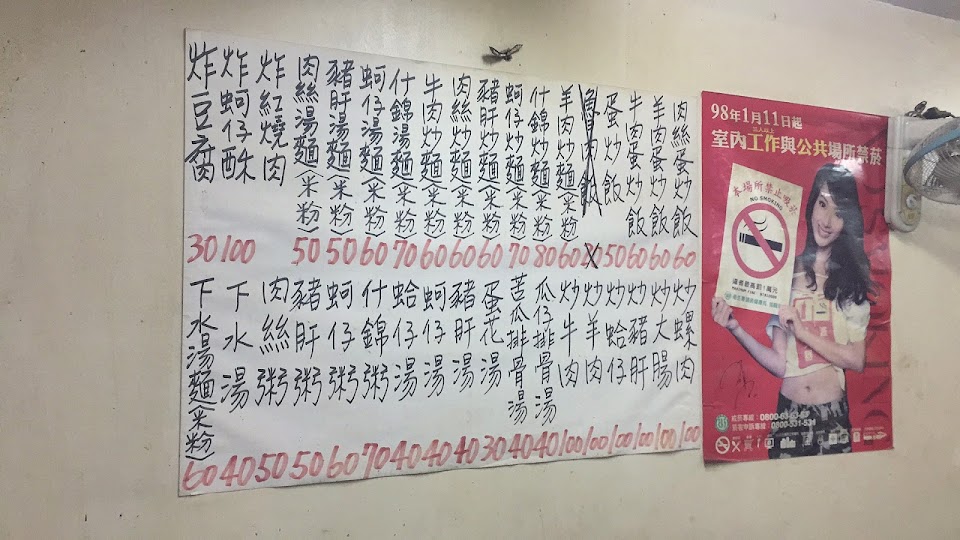 肉絲蛋炒飯 60
羊肉蛋炒飯 60
牛肉蛋炒飯 60
蛋炒飯 50
羊肉炒麵(米粉) 60
什錦炒麵(米粉) 80
蚵仔炒麵(米粉) 70
豬肝炒麵(米粉) 60
肉絲炒麵(米粉) 60
牛肉炒麵(米粉) 60
什錦湯麵(米粉) 70
蚵仔湯麵(米粉) 60
豬肝湯麵(米粉) 50
肉絲湯麵(米粉) 50
炸紅燒肉
炸蚵仔酥 100
炸豆腐 30
炒螺肉 100
炒大腸 100
炒豬肝 100
炒蛤仔 100
炒羊肉 100
炒牛肉 100
瓜仔排骨湯 40
苦瓜排骨湯 40
蛋花湯 30
豬肝湯 40
蚵仔湯 40
蛤仔湯 40
什錦粥 70
蚵仔粥 60
豬肝粥 50
肉絲粥 50
下水湯 40
下水湯麵(米粉) 60
98年1月11日起
三人以上
室內工作與公共場所禁菸
本場所禁止吸菸
NO SMOKING
0800-531-531